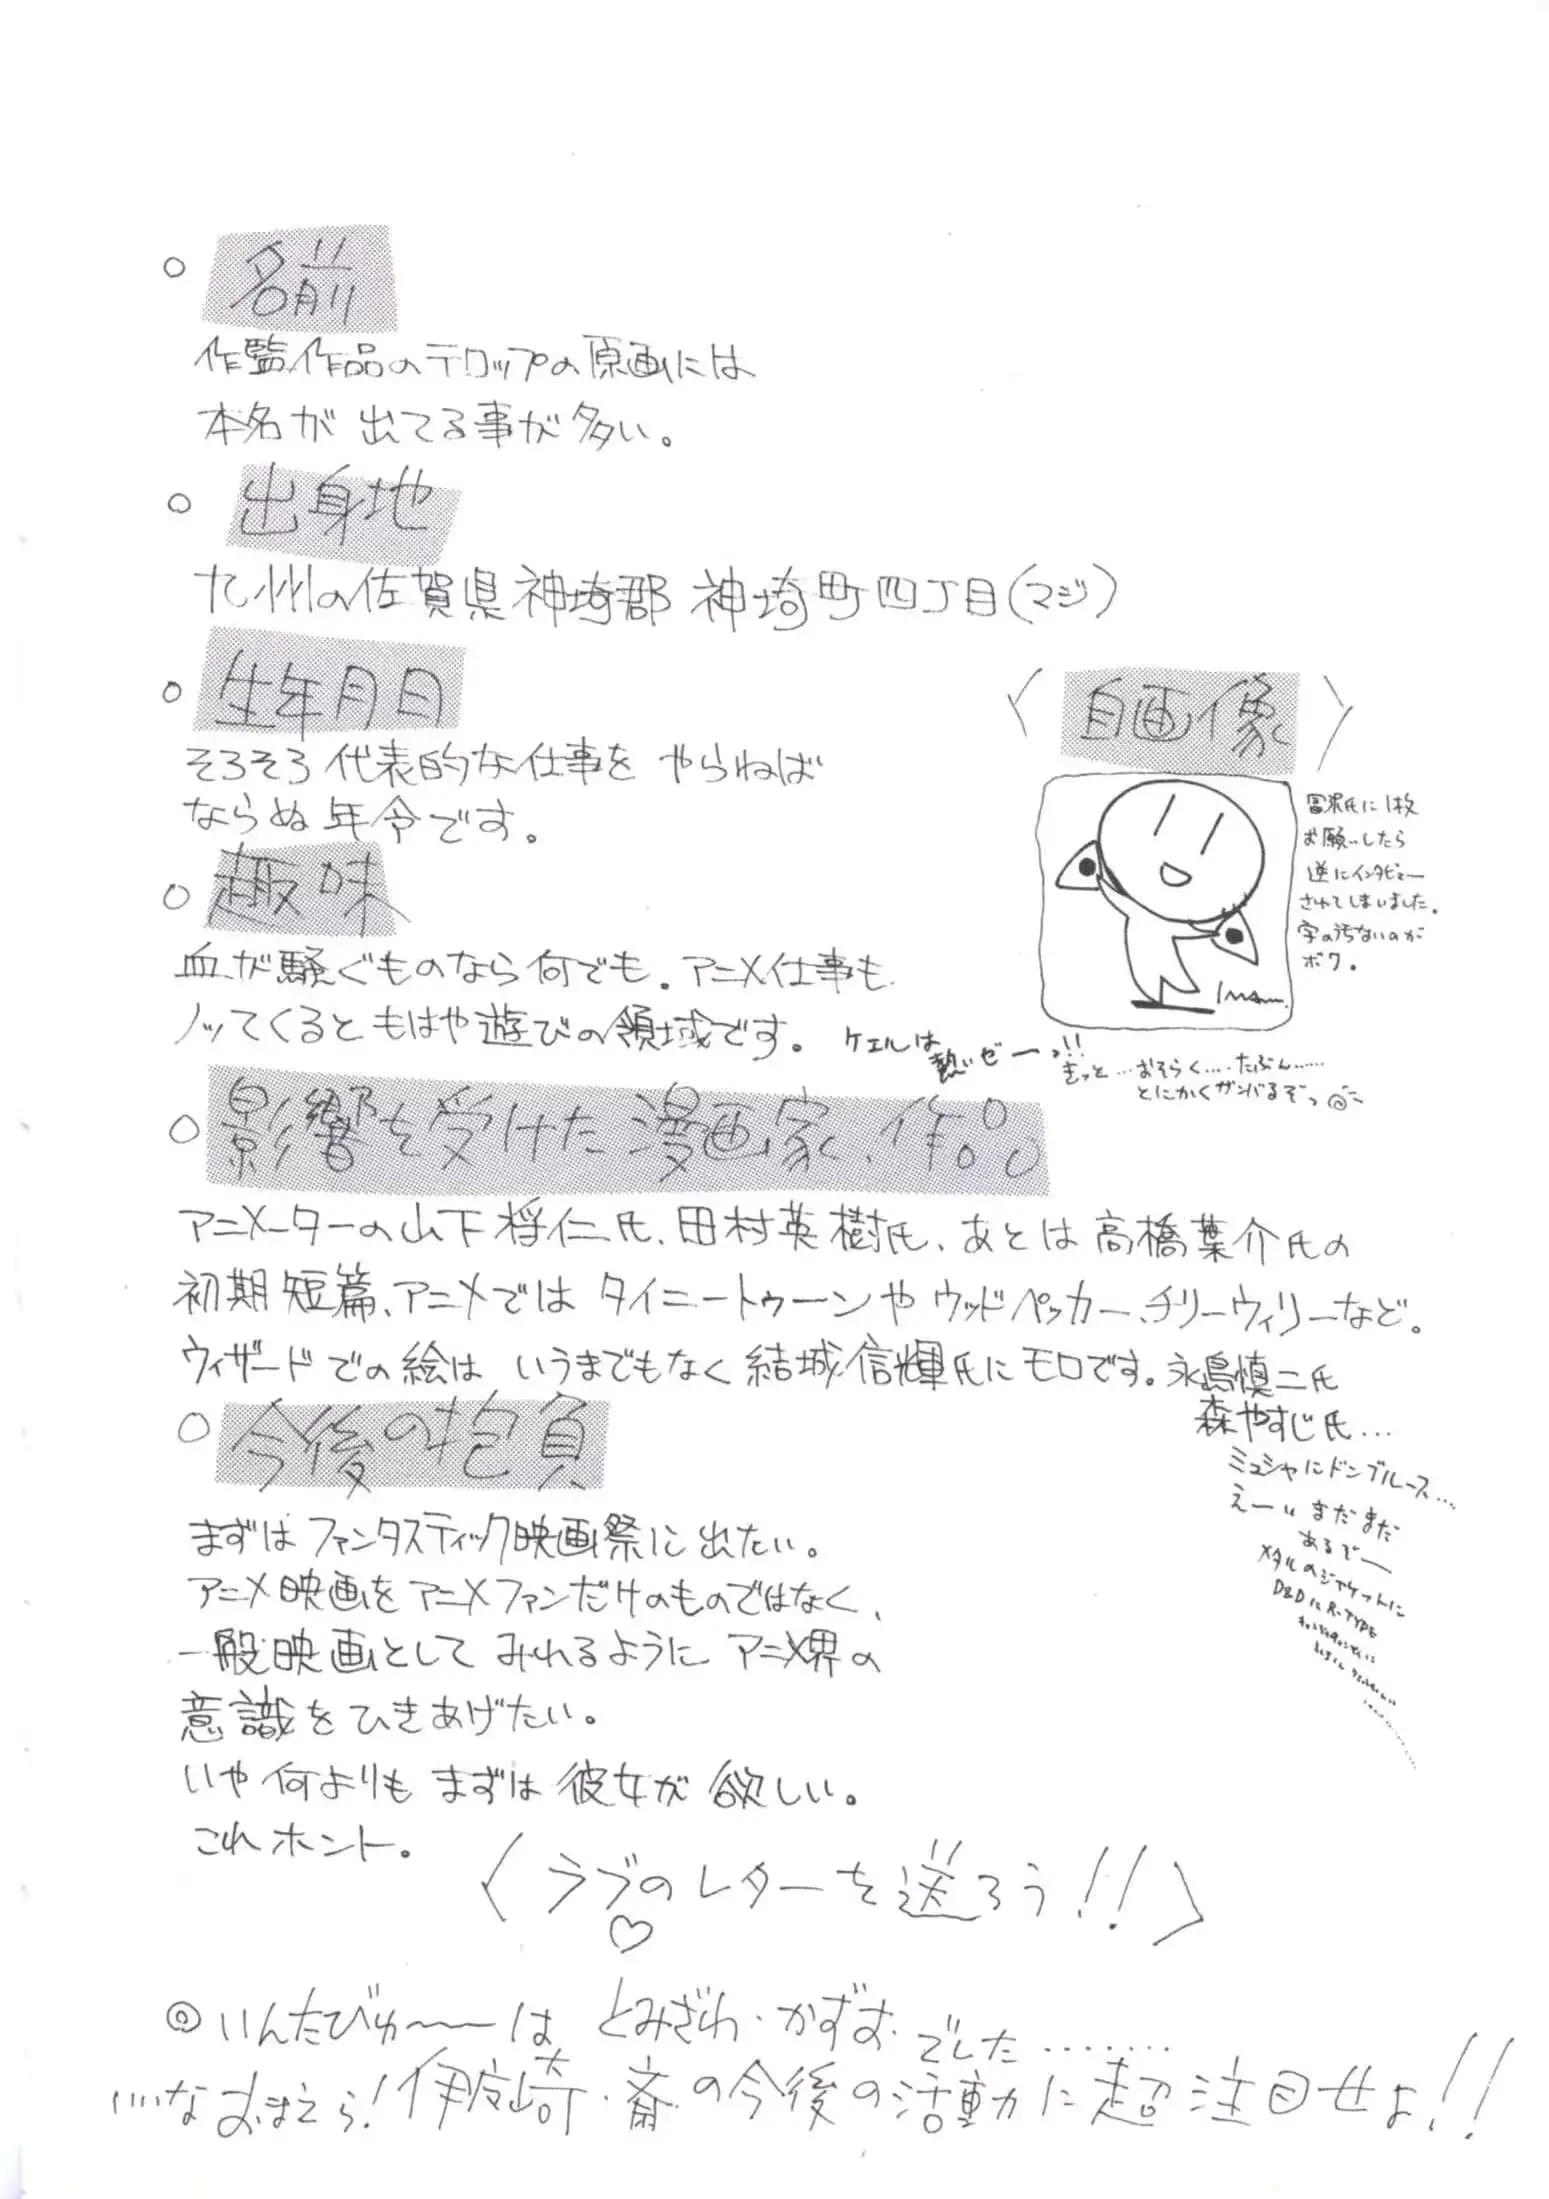 ○ 名前
作監作品のテロップの原画には
本名が出てる事が多い。
○ 出身地
九州の佐賀県神埼郡神埼町四丁目(マジ)
○ 生年月日
そろそろ代表的な仕事をやらねば
ならぬ年令です。
〈自画像〉
冨沢氏に1枚
お願いしたら
逆にインタビュー
されてしまいました。
字の汚ないのが
ボク。
○ 趣味
血が騒ぐものなら何でも。アニメ仕事も
ノッてくるともはや遊びの領域です。
ケェルは
熱いゼーっ!!
きっと…おそらく….たぶん……
とにかくガンバるぞっ
○ 影響を受けた漫画家、作品
アニメーターの山下将仁氏、田村英樹氏、あとは高橋葉介氏の
初期短篇、アニメではタイニートゥーンやウッドペッカー、チリーウィリーなど。
ウィザードでの絵はいうまでもなく結城信輝氏にモロです。永島慎二氏
森やすじ氏…
ミュシャにドンブルース…
えーいまだまだ
あるぞー
メタルのジャケットに
D&DにR-TYPE
○ 今後の抱負
まずはファンタスティック映画祭に出たい。
アニメ映画をアニメファンだけのものではなく、
一般映画としてみれるようにアニメ界の
意識をひきあげたい。
いや何よりもまずは彼女が欲しい。
これホント。
〈ラブのレターを送ろう!!〉
♡
◎いんたびゅ〜〜はとみざわ・かずお・でした………
……なおまえら!伊崎・斎の今後の活動に超注目せよ!!